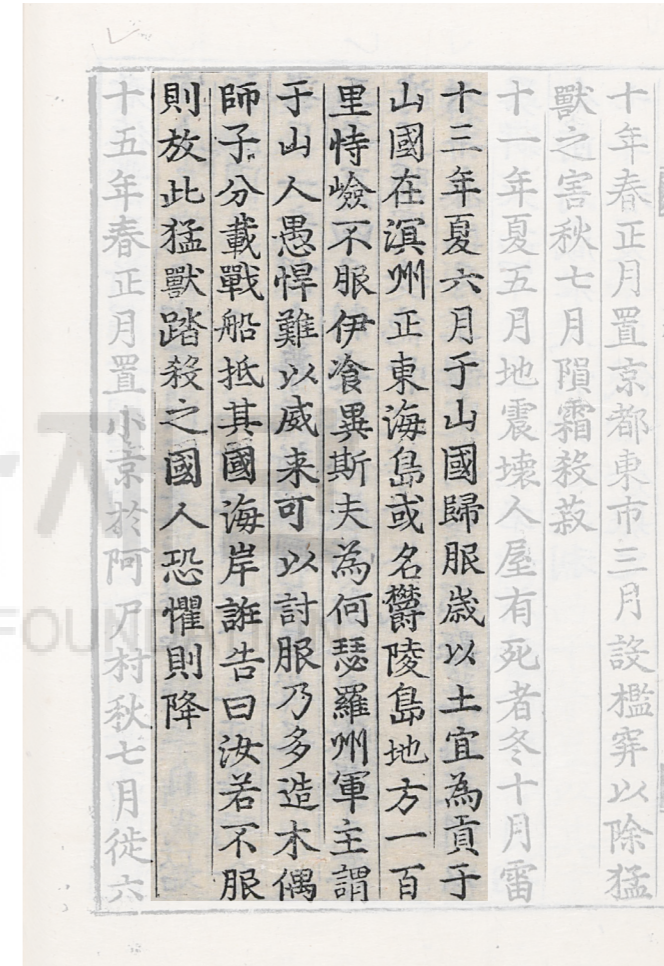 十年春正月置京都東市三月設檻穽以除猛
獸之害秋七月隕霜殺菽
十一年夏五月地震壞人屋有死者冬十月雷
十三年夏六月于山國歸服歲以土宜為貢于
山國在溟州正東海島或名欝陵島地方一百
里恃嶮不服伊飡異斯夫為何瑟羅州軍主謂
于山人愚悍難以威来可以討服乃多造木偶
師子分載戰船抵其國海岸誑告曰汝若不服
則放此猛獸踏殺之國人恐懼則降
十五年春正月置小京於阿尸村秋七月徙六
FOUNDATION